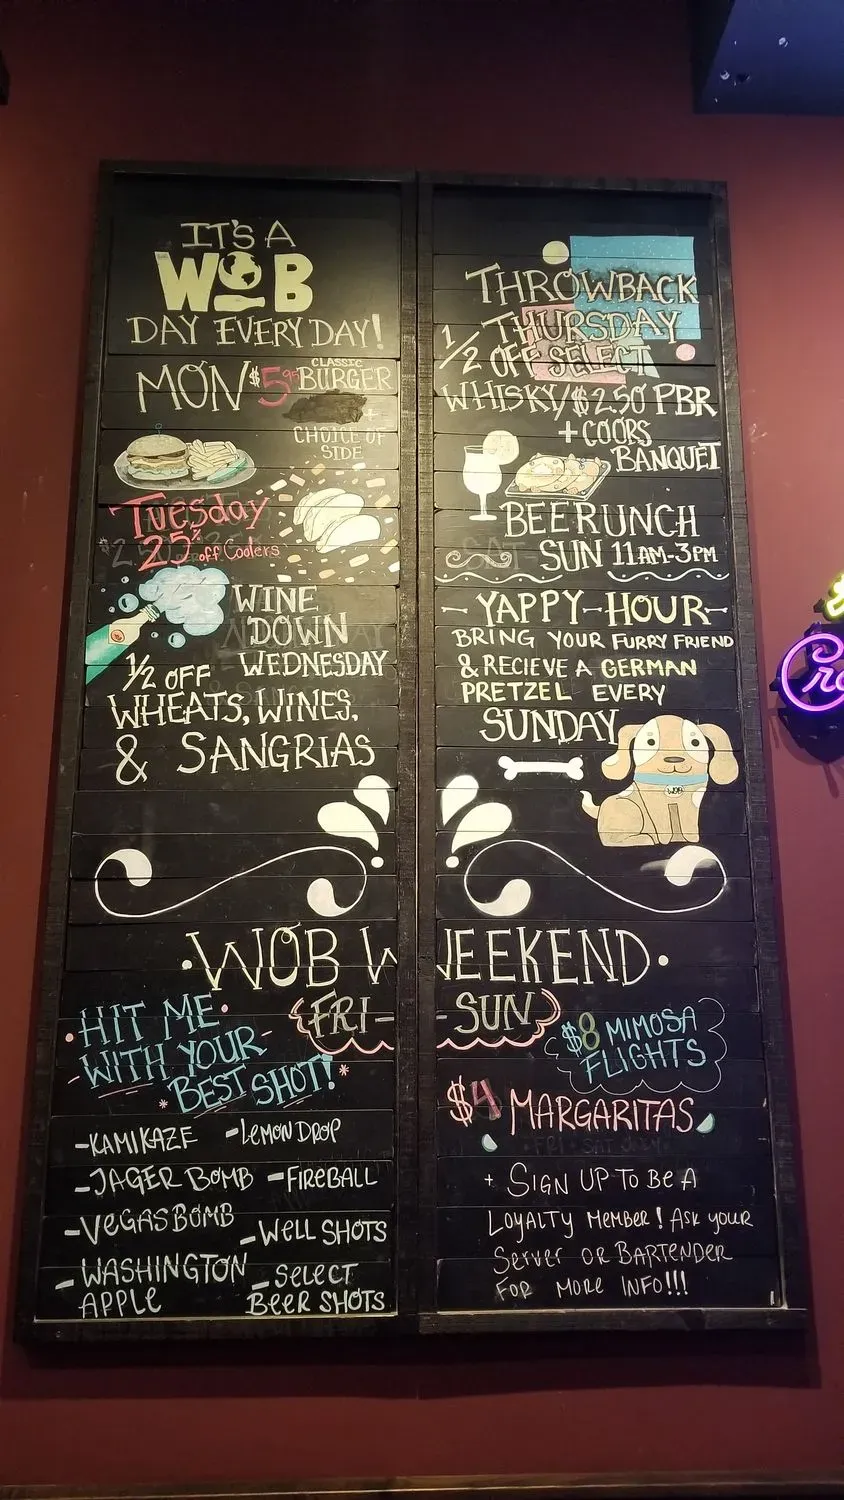 IT'S A
WOB
DAY EVERY DAY!
MON $5.95 CLASSIC BURGER
+
CHOICE OF
SIDE
Tuesday
25% off Coolers
WINE
DOWN
WEDNESDAY
1/2 OFF
WHEATS, WINES,
& SANGRIAS
THROWBACK
THURSDAY
1/2 OFF SELECT
WHISKY/$2.50 PBR
+ COORS
BANQUET
BEERUNCH
SUN 11AM-3PM
-YAPPY-HOUR-
BRING YOUR FURRY FRIEND
& RECIEVE A GERMAN
PRETZEL EVERY
SUNDAY
WOB
·WOB WEEKEND·
FRI--SUN
HIT ME
WITH YOUR
BEST SHOT!
-KAMIKAZE
-LEMON DROP
-JAGER BOMB
-FIREBALL
-VEGAS BOMB
-WELL SHOTS
-WASHINGTON
APPLE
-SELECT
BEER SHOTS
$8 MIMOSA
FLIGHTS
$4 MARGARITAS
+ SIGN UP TO BE A
LOYALTY MEMBER! ASK YOUR
SERVER OR BARTENDER
FOR MORE INFO!!!